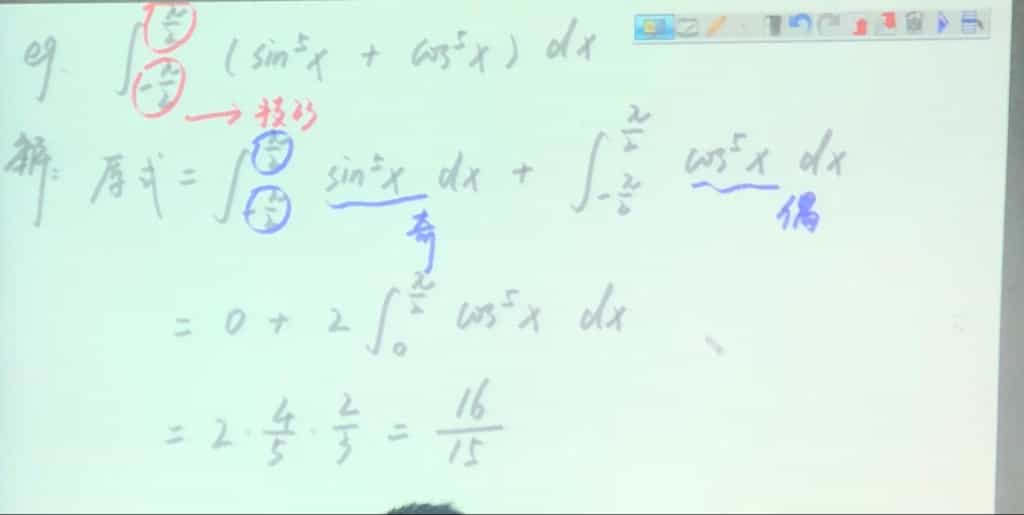 eg. ∫_{-π/2}^{π/2} (sin⁵x + cos⁵x) dx
→ 积分
解: 原式 = ∫_{-π/2}^{π/2} sin⁵x dx + ∫_{-π/2}^{π/2} cos⁵x dx
奇 偶
= 0 + 2 ∫_0^{π/2} cos⁵x dx
= 2 · 4/5 · 2/3 = 16/15